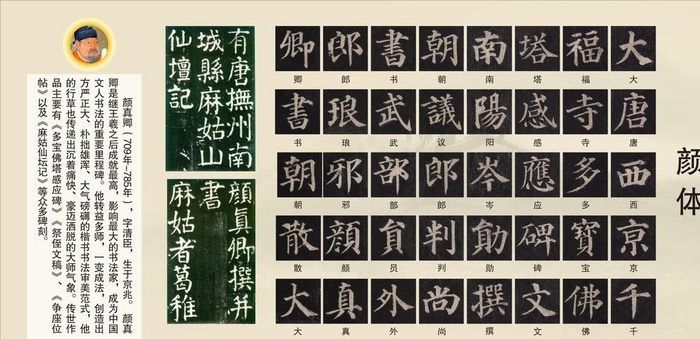 颜体
大唐西京千
大唐西京千
福寺多寶佛
福寺多宝佛
塔感應碑文
塔感应碑文
南陽岑勛撰
南阳岑勋撰
朝議郎判尚
朝议郎判尚
書武部員外
书武部员外
郎琅邪顏真
郎琅邪颜真
卿書朝散大
卿书朝散大
有唐撫州南
城縣麻姑山
仙壇記
顏真卿撰并
書
麻姑者葛稚
颜真卿（709年-785年），字清臣，生于京兆。颜真
卿是继王羲之后成就最高，影响最大的书法家，成为中国
文人书法的重要里程碑。他转益多师，一变成法，创造出
方严正大、朴拙雄浑、大气磅礴的楷书书法审美范式，他
的行草也传递出沉着痛快、豪迈洒脱的大师气象。传世作
品主要有《多宝佛塔感应碑》《祭侄文稿》、《争座位
帖》以及《麻姑仙坛记》等众多碑刻。